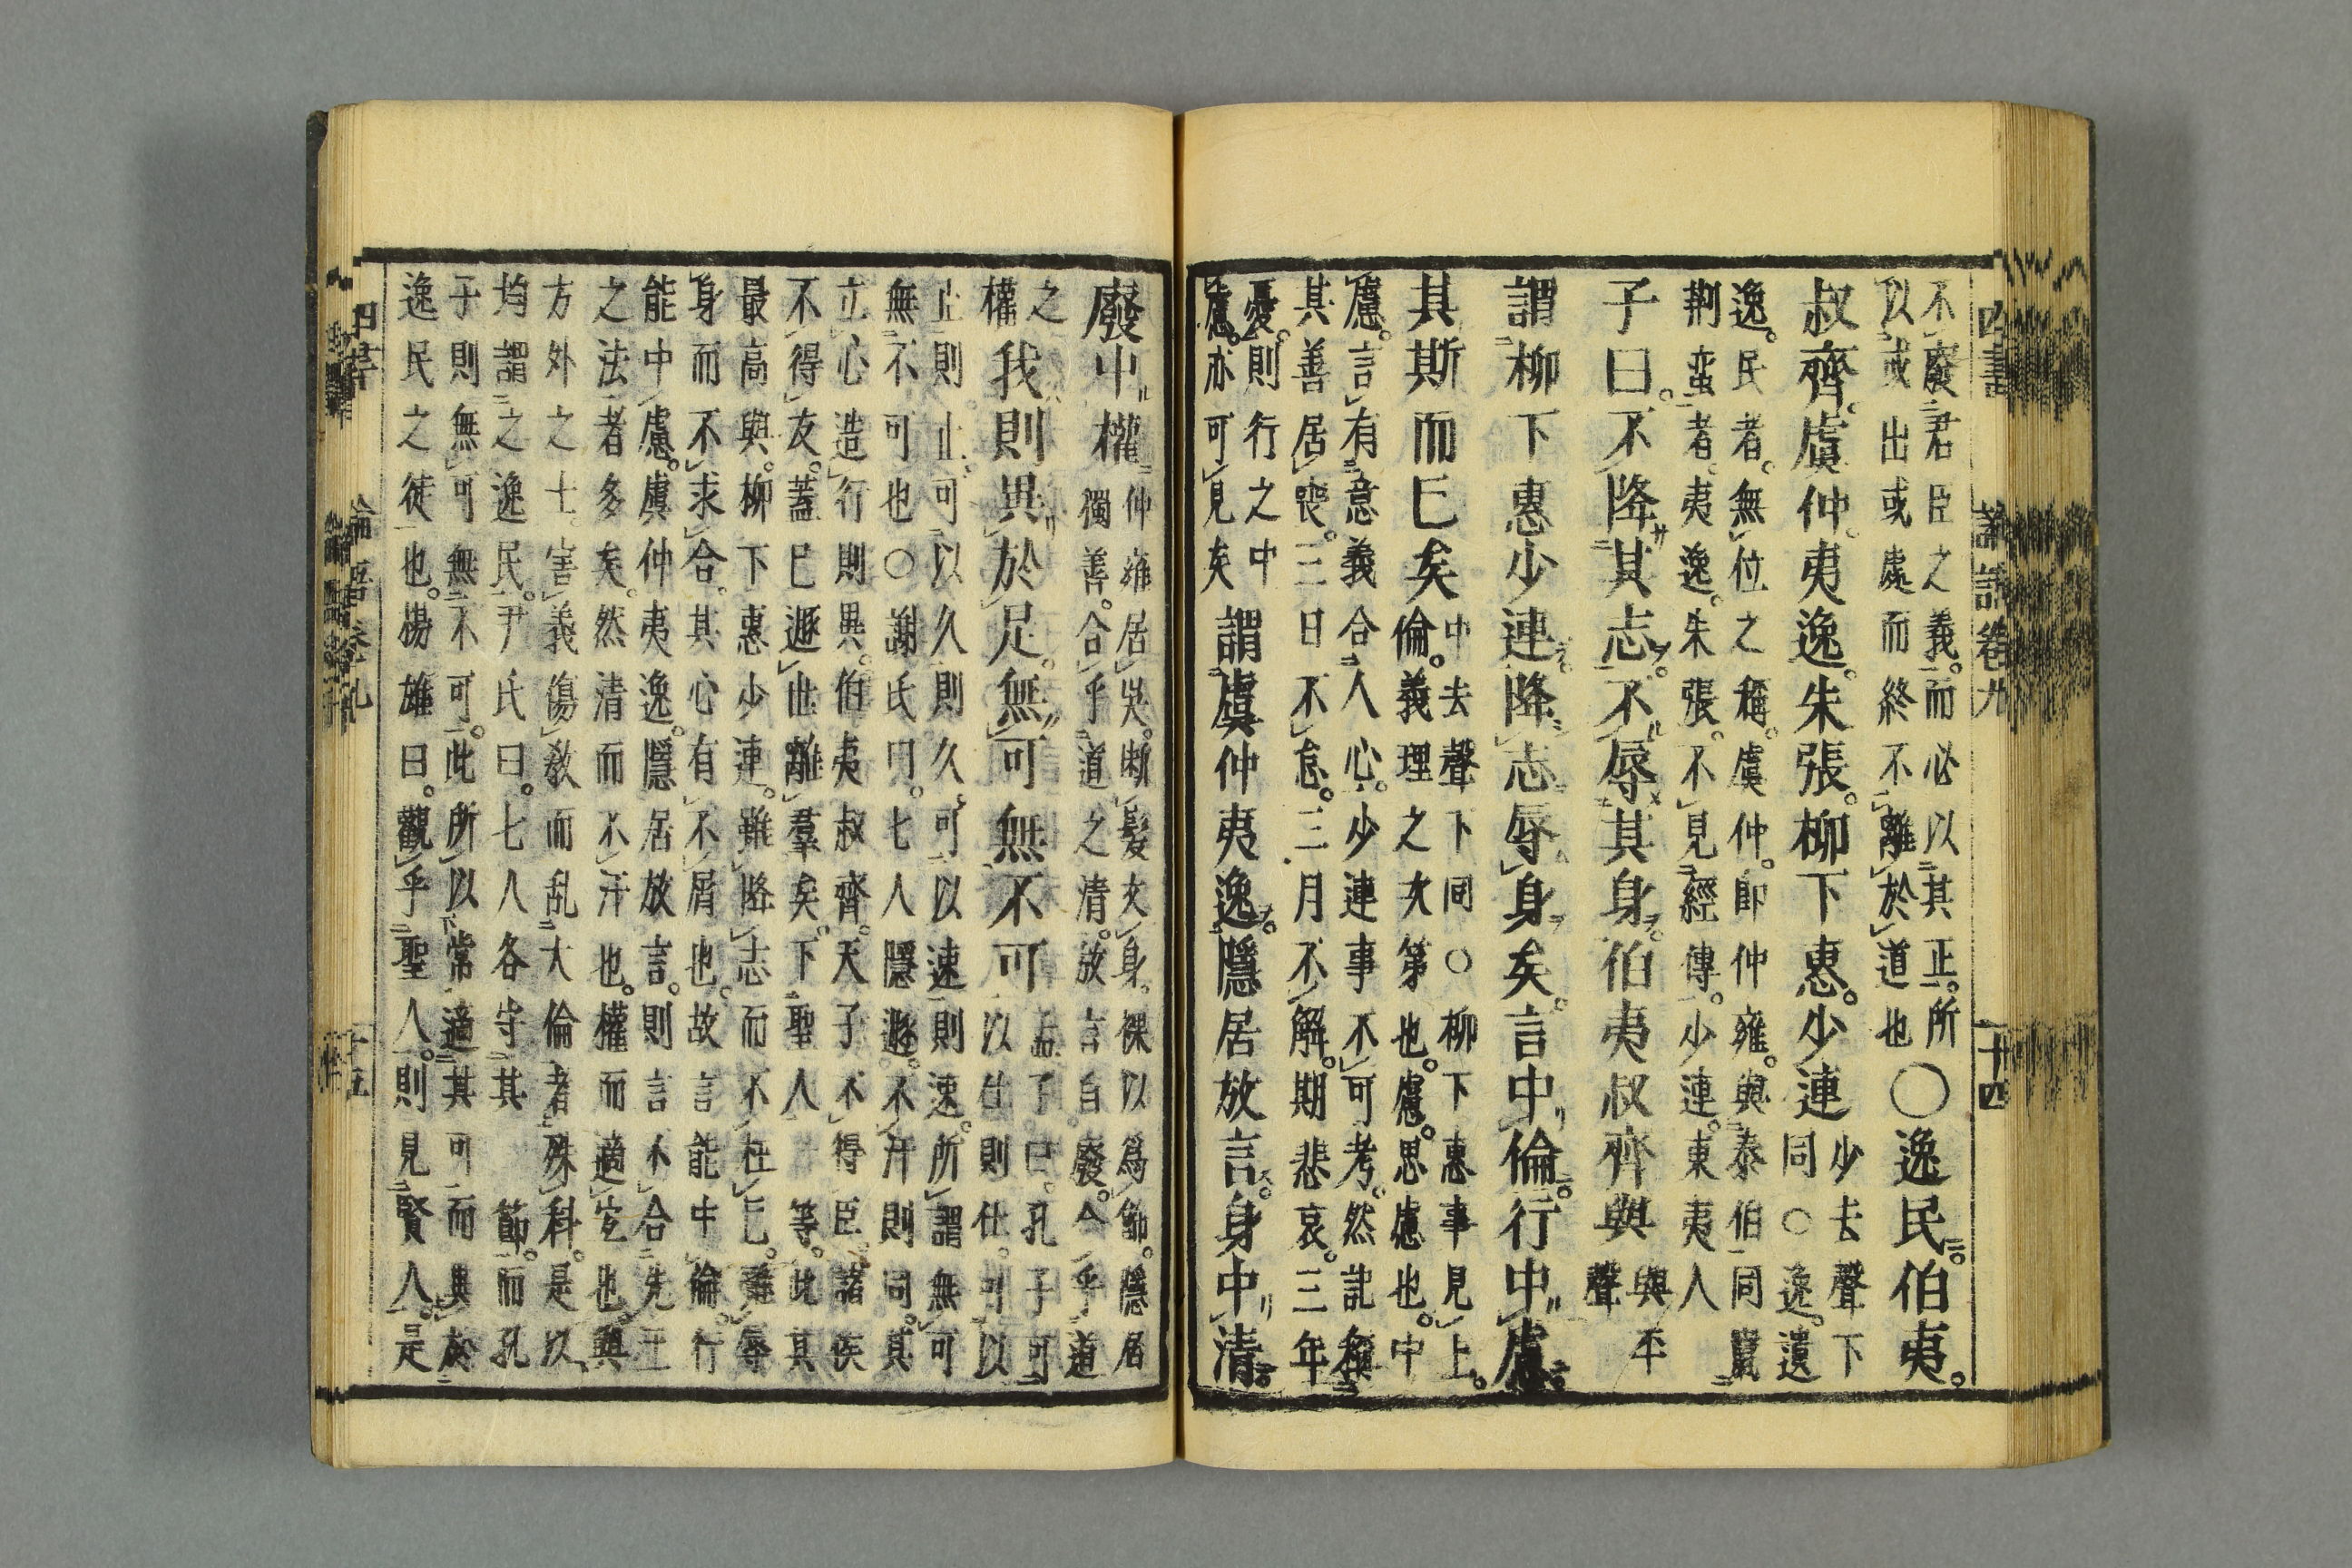 四書　論語卷九　十四
不廢君臣之義。而必以其正。所
以或出或處而終不離於道也
〇逸民伯夷。
叔齊。虞仲。夷逸。朱張。柳下惠。少連
少去聲下
同〇逸。遺
逸。民者。無位之稱。虞仲。即仲雍。與泰伯同竄
荆蛮者。夷逸。朱張。不見經傳。少連。東夷人
子曰。不降其志。不辱其身。伯夷叔齊與
與平
聲
謂柳下惠少連。降志辱身矣。言中倫。行中慮。
其斯而已矣
中去聲下同〇柳下惠事見上。
倫。義理之次第也。慮。思慮也。中
慮。言有意義合人心。少連事不可考。然記稱
其善居喪。三日不怠。三月不解。期悲哀。三年
憂。則行之中
慮。亦可見矣
謂虞仲夷逸。隱居放言。身中清。
廢中權
仲雍居吳。断髮文身。裸以爲飾。隱居
獨善。合乎道之清。放言自廢。合乎道
之
權
我則異於是。無可無不可
孟子曰。孔子可
以仕則仕。可以
止則止。可以久則久。可以速則速。所謂無可
無不可也〇謝氏曰。七人隱遯。不汙則同。其
立心造行則異。伯夷叔齊。天子不得臣。諸侯
不得友。蓋已遯世離羣矣。下聖人一等。此其
最高與。柳下惠少連。雖降志而不枉己。雖辱
身而不求合。其心有不屑也。故言能中倫。行
能中慮。虞仲夷逸。隱居放言。則言不合先王
之法者多矣。然清而不汙也。權而適宜也。與
方外之士。害義傷教而乱大倫者殊科。是以
均謂之逸民。尹氏曰。七人各守其一節。而孔
子則無可無不可。此所以常適其可。而異於
逸民之徒也。揚雄曰。觀乎聖人。則見賢人。是
四書　論語卷九　十五